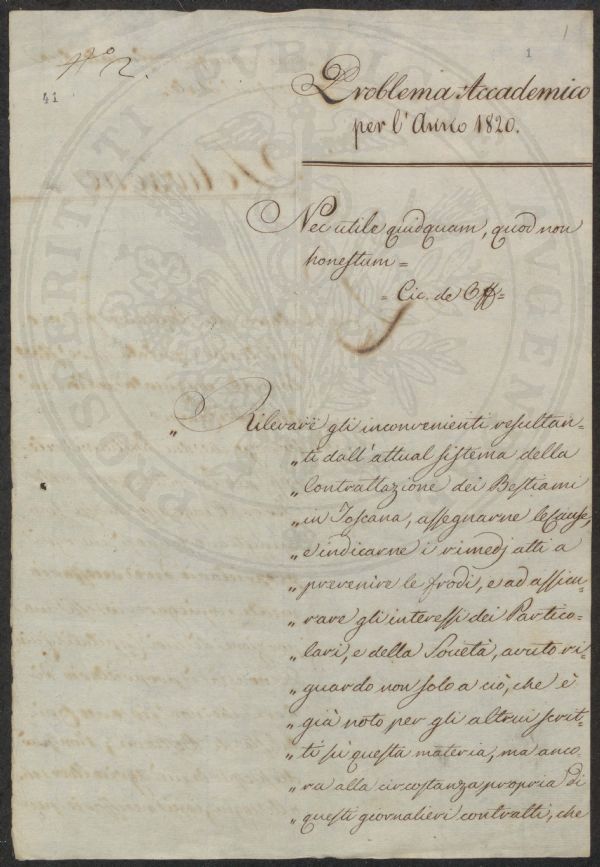 N.º 2.
1
1
41
Problema Accademico
per l'Anno 1820.
Nec utile quidquam, quod non
honestum =
= Cic. de Off =
„ Rilevare gli inconvenienti resultan-
„ ti dall'attual sistema della
„ Contrattazione dei Bestiami
„ in Toscana, assegnarne le cause,
„ e indicarne i rimedj atti a
„ prevenire le frodi, e ad assicu-
„ rare gli interessi dei Partico-
„ lari, e della Società, avuto ri-
„ guardo non solo a ciò, che è
„ già noto per gli altrui scrit-
„ ti su questa materia, ma anco-
„ ra alla circostanza propria di
„ questi giornalieri contratti, che
PROSPERITATI PUBLICAE AUGEN